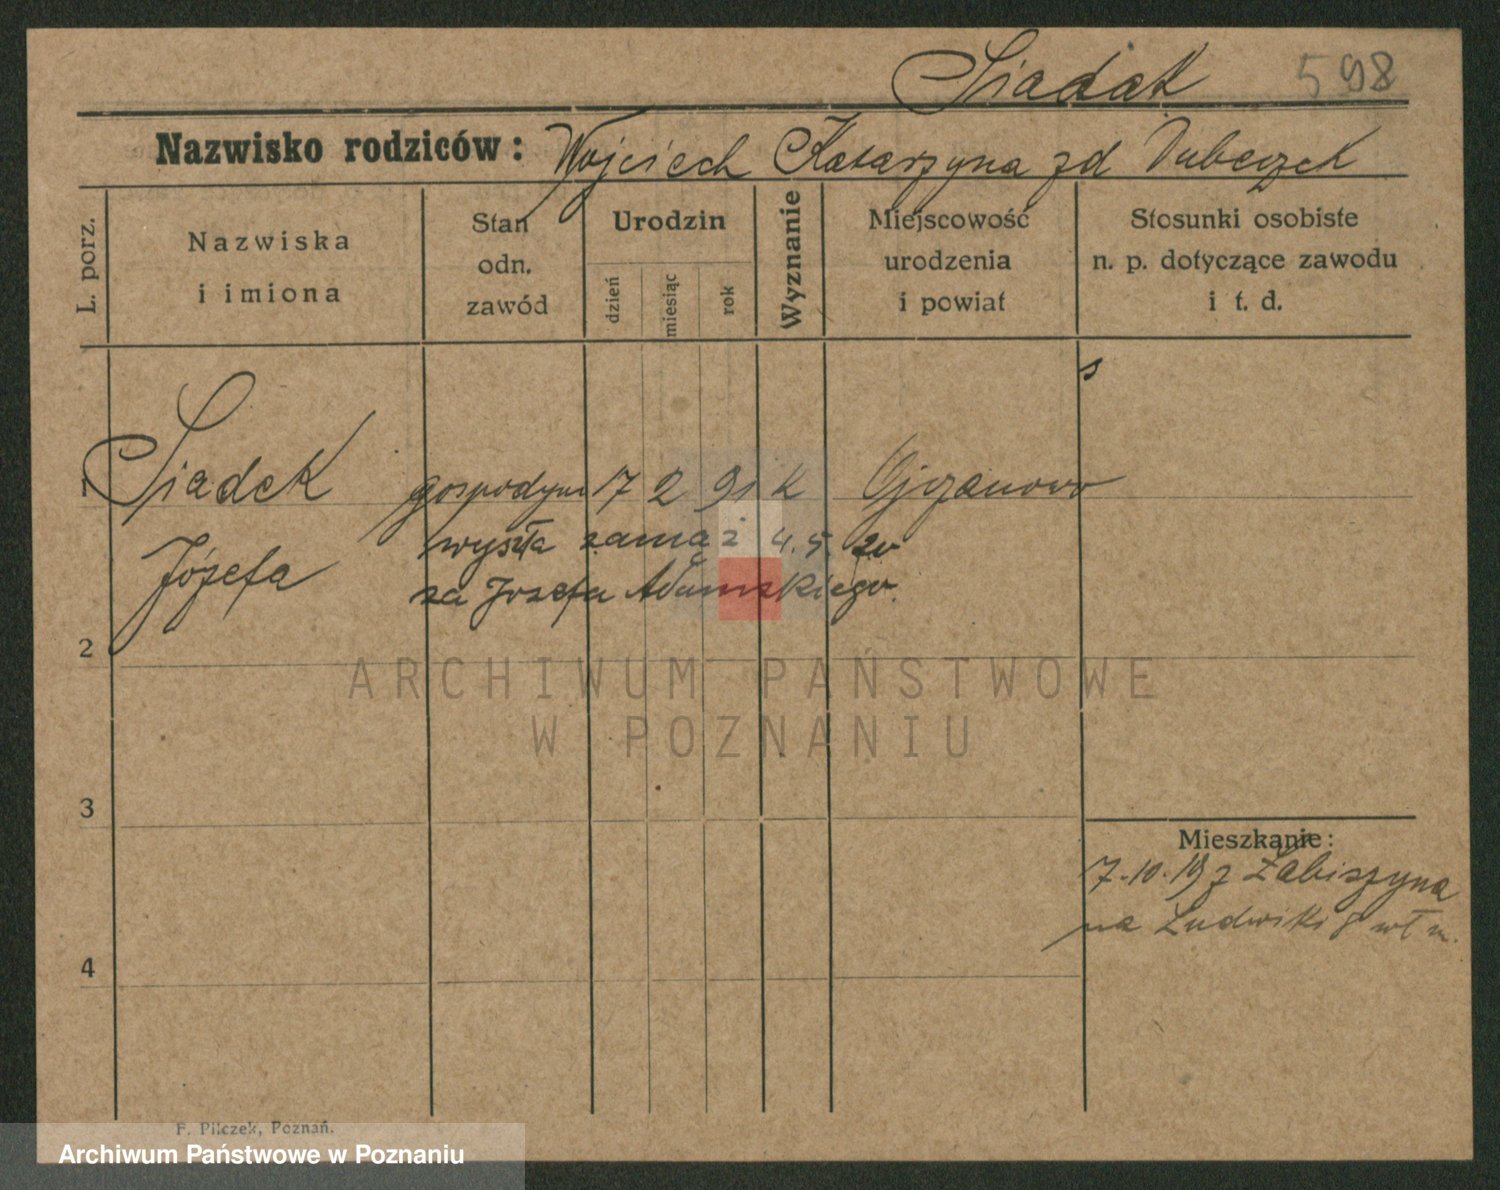 Siadak 598
Nazwisko rodziców: Wojciech Katarzyna zd Dubeczek
L. porz.
Nazwiska i imiona
Stan odn. zawód
Urodzin
dzień
miesiąc
rok
Wyznanie
Miejscowość urodzenia i powiat
Stosunki osobiste n. p. dotyczące zawodu i t. d.
s
1 Siadek gospodyni 17 2 91 k Ojrzanowo
Józefa
wyszła zamąż 4. 5. 20
za Józefa Adamskiego.
2
3
4
Mieszkanie:
7.10.19 z Łabiszyna
na Ludwiki 8 wł m.
F. Pilczek, Poznań.
ARCHIWUM PAŃSTWOWE
W POZNANIU
Archiwum Państwowe w Poznaniu